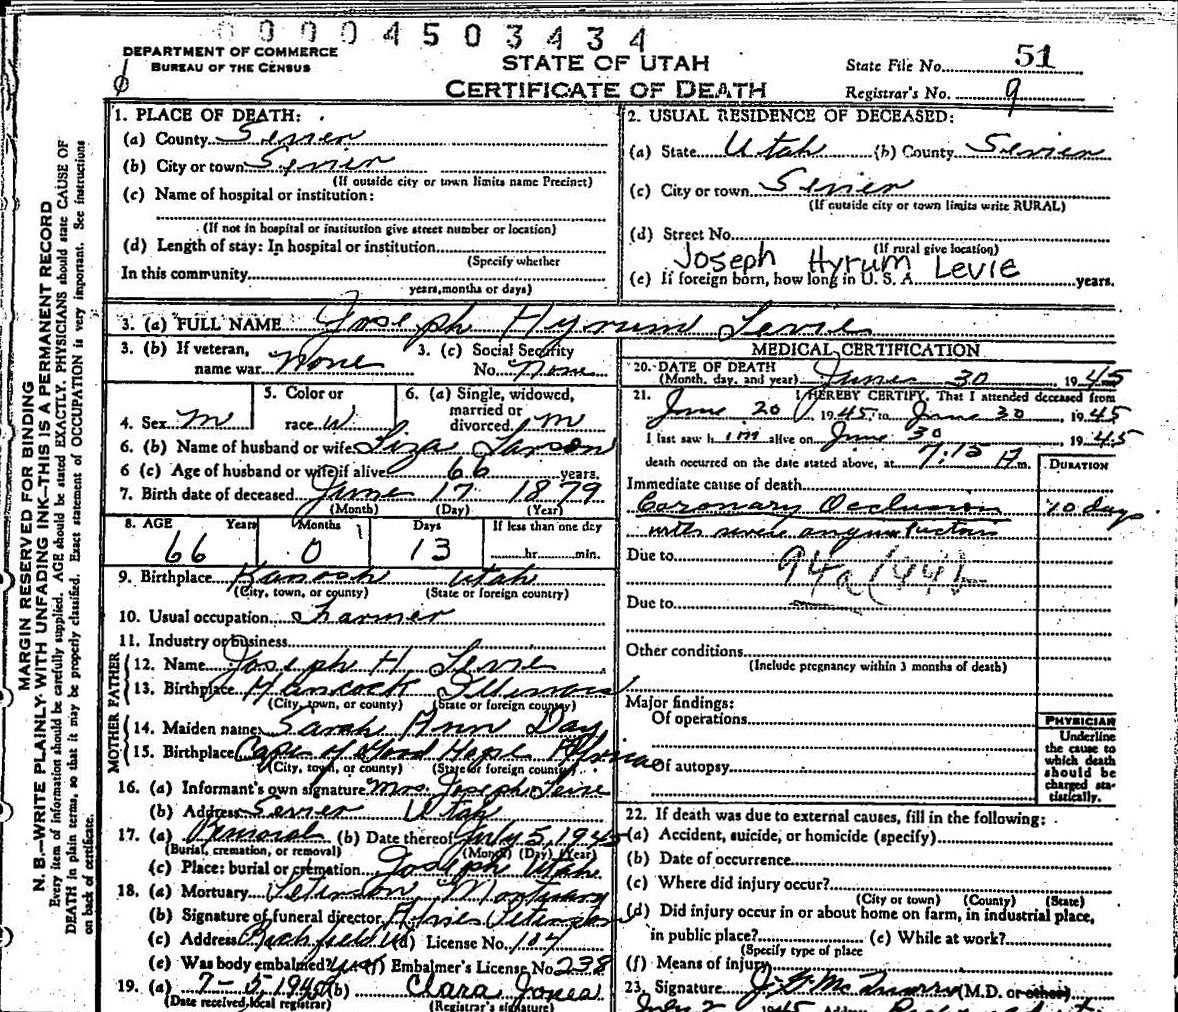 00004503434
DEPARTMENT OF COMMERCE
BUREAU OF THE CENSUS
STATE OF UTAH
CERTIFICATE OF DEATH
State File No. 51
Registrar's No. 9
MARGIN RESERVED FOR BINDING
N. B.—WRITE PLAINLY WITH UNFADING INK—THIS IS A PERMANENT RECORD
Every item of information should be carefully supplied. AGE should be stated EXACTLY. PHYSICIANS should state CAUSE OF
DEATH in plain terms, so that it may be properly classified. Exact statement of OCCUPATION is very important. See instructions
on back of certificate.
1. PLACE OF DEATH:
(a) County Sevier
(b) City or town Sevier
(If outside city or town limits name Precinct)
(c) Name of hospital or institution:
(If not in hospital or institution give street number or location)
(d) Length of stay: In hospital or institution
(Specify whether
In this community
years, months or days)
2. USUAL RESIDENCE OF DECEASED:
(a) State Utah (b) County Sevier
(c) City or town Sevier
(If outside city or town limits write RURAL)
(d) Street No.
(If rural give location)
Joseph Hyrum Levie
(e) If foreign born, how long in U. S. A. years.
3. (a) FULL NAME Joseph Hyrum Levie
3. (b) If veteran, name war None
3. (c) Social Security No. None
4. Sex M
5. Color or race W.
6. (a) Single, widowed, married or divorced. M
6. (b) Name of husband or wife Liza Larson
6 (c) Age of husband or wife if alive 66 years.
7. Birth date of deceased June 17 1879
(Month) (Day) (Year)
8. AGE Years Months Days If less than one day
66 0 13 hr. min.
9. Birthplace Kanosh Utah
(City, town, or county) (State or foreign country)
10. Usual occupation Farmer
11. Industry or business
FATHER
12. Name Joseph H Levie
13. Birthplace Hancock Illinois
(City, town, or county) (State or foreign country)
MOTHER
14. Maiden name Sarah Ann Day
15. Birthplace Cape of Good Hope Africa
(City, town, or county) (State or foreign country)
16. (a) Informant's own signature Mrs. Joseph Levie
(b) Address Sevier Utah
17. (a) Removal (b) Date thereof July 5, 1945
(Burial, cremation, or removal) (Month) (Day) (Year)
(c) Place: burial or cremation Joseph Utah
18. (a) Mortuary Peterson Mortuary
(b) Signature of funeral director Peterson
(c) Address Richfield (d) License No. 104
(e) Was body embalmed? yes (f) Embalmer's License No 238
19. (a) 7-5-1945 (b) Clara Jones
(Date received local registrar) (Registrar's signature)
MEDICAL CERTIFICATION
20. DATE OF DEATH
(Month, day, and year) June 30, 1945
21. I HEREBY CERTIFY, That I attended deceased from
June 20, 1945 to June 30, 1945
I last saw him alive on June 30, 1945
death occurred on the date stated above, at 7:15 P m.
DURATION
Immediate cause of death
Coronary Occlusion 10 days
with severe angina
Due to 94a
Due to
Other conditions
(Include pregnancy within 3 months of death)
Major findings:
Of operations
Of autopsy
PHYSICIAN
Underline
the cause to
which death
should be
charged sta-
tistically.
22. If death was due to external causes, fill in the following:
(a) Accident, suicide, or homicide (specify)
(b) Date of occurrence
(c) Where did injury occur?
(City or town) (County) (State)
(d) Did injury occur in or about home on farm, in industrial place,
in public place? (e) While at work?
(Specify type of place
(f) Means of injury
23. Signature J. G. McQuarrie (M.D. or other)
July 2 1945